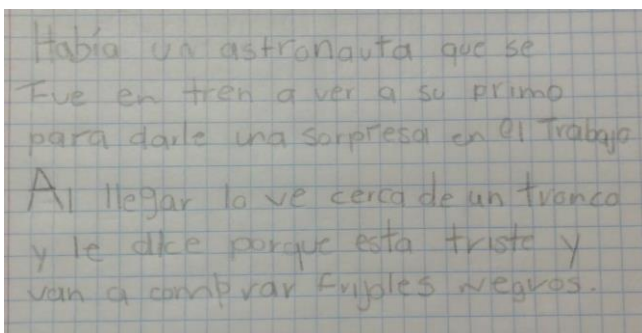 Había un astronauta que se
Fue en tren a ver a su primo
para darle una sorpresa en el Trabajo
Al llegar lo ve cerca de un tronco
y le dice porque esta triste y
van a comprar frijoles negros.